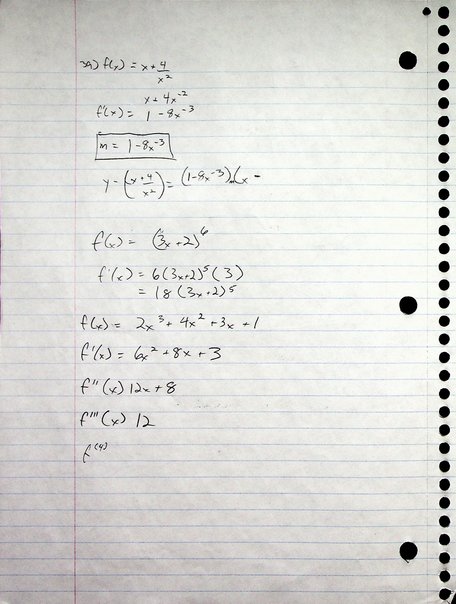 39) f(x) = x + 4/x²
x + 4x⁻²
f'(x) = 1 - 8x⁻³
m = 1 - 8x⁻³
y - (x + 4/x²) = (1 - 8x⁻³)(x -
f(x) = (3x + 2)⁶
f'(x) = 6(3x+2)⁵(3)
= 18(3x+2)⁵
f(x) = 2x³ + 4x² + 3x + 1
f'(x) = 6x² + 8x + 3
f''(x) 12x + 8
f'''(x) 12
f⁽⁴⁾